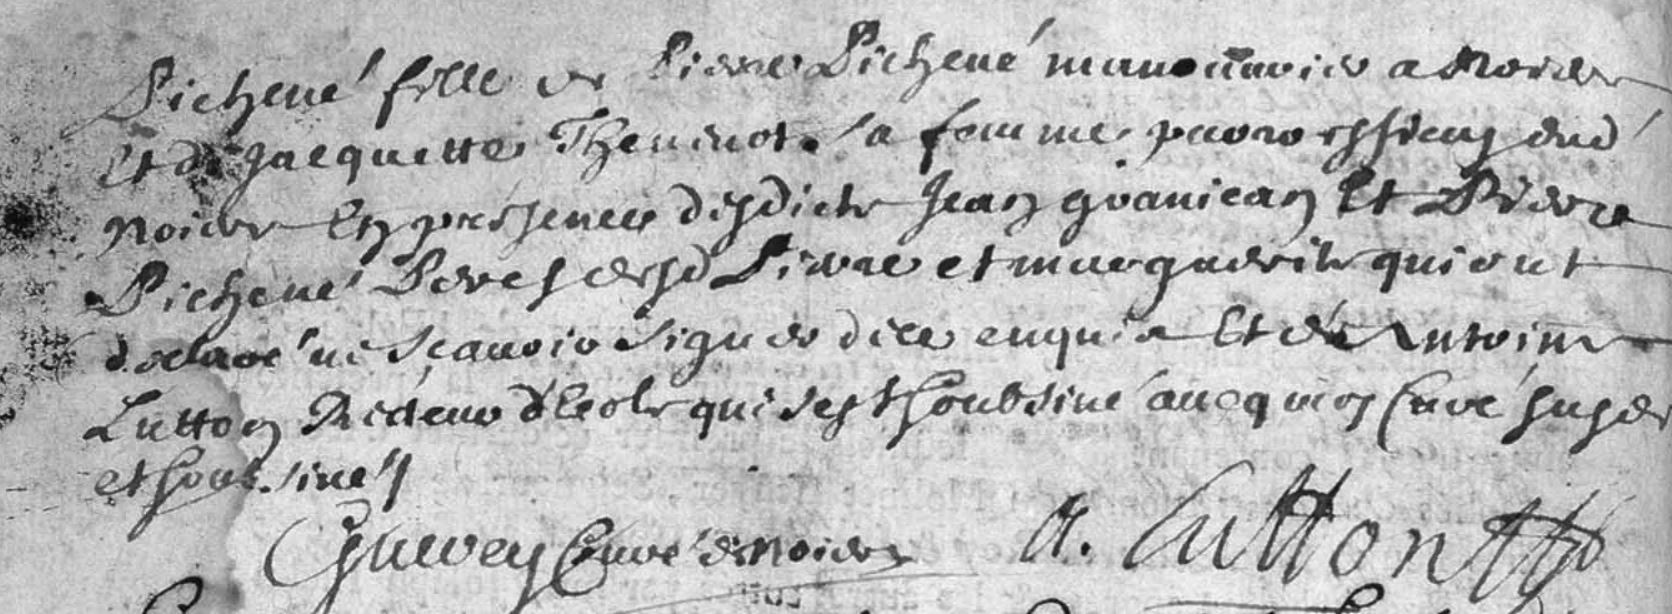 Pichené fille de Pierre Pichené manouuvrier a Noider
Et de Jacquette Theuenot sa femme parroissiens dud
Noider En presence desdicts Jean Granjean Et Pierre
Pichené Peres desd Pierre et marguerite qui ont
declaré ne sçauoir signer de ce enquis Et de Antoine
Lutton Recteur d'Ecole qui sest soubsiné auecq moy Curé susd
et soubsinés
Curé de Noider A. Lutton